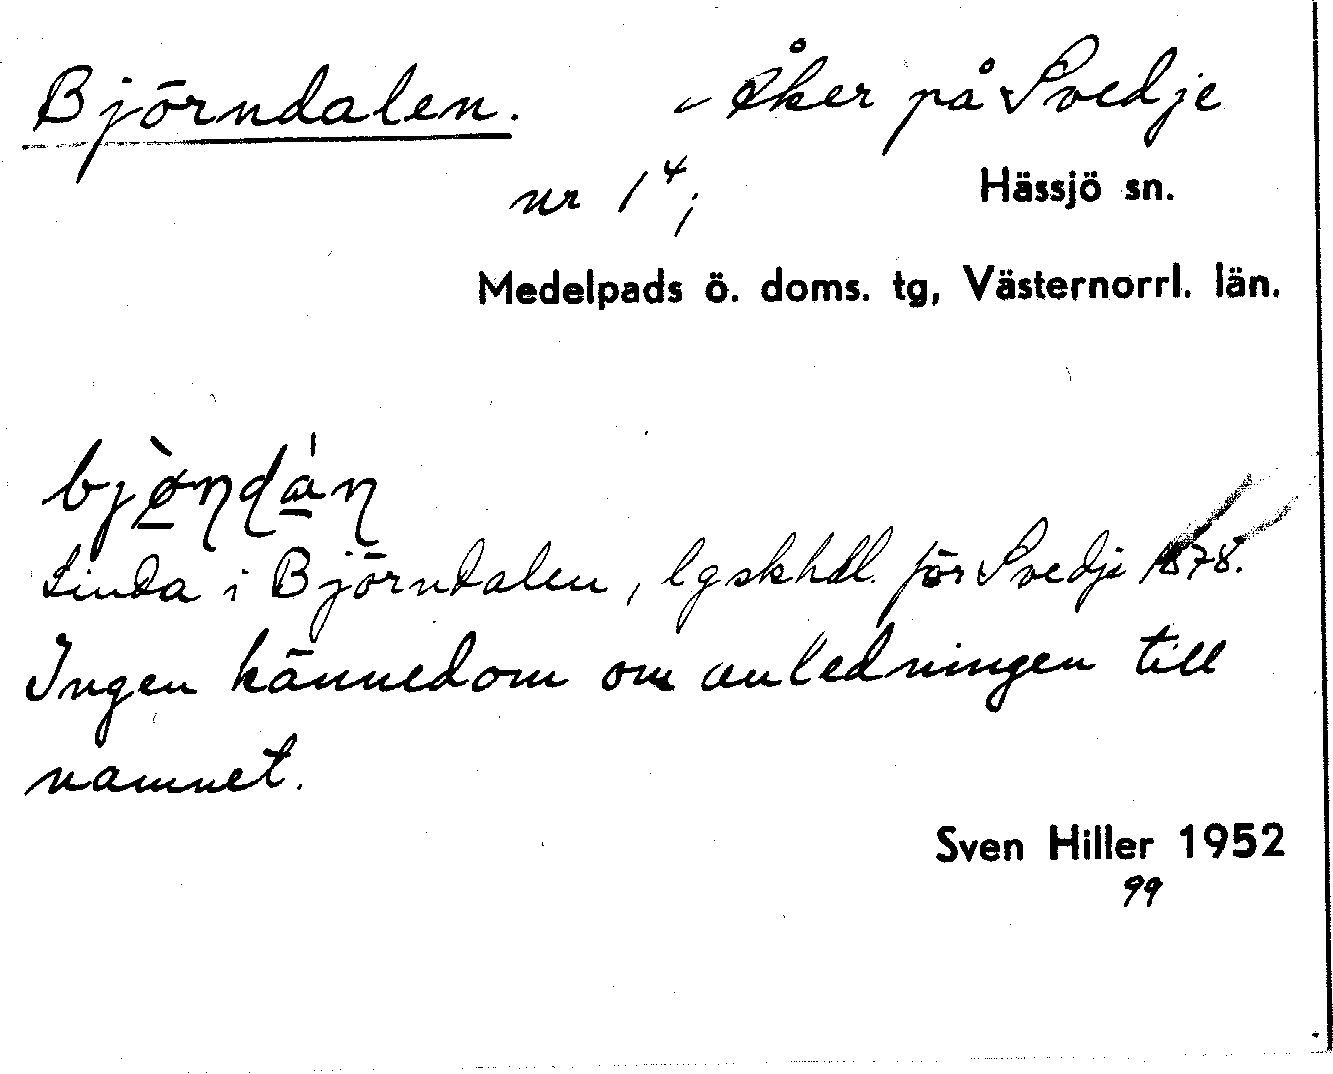 Björndalen. Åker på Svedje
nr 1⁴;
Hässjö sn.
Medelpads ö. doms. tg, Västernorrl. län.
Linda i Björndalen, lgskhdl. för Svedje 1878.
Ingen kännedom om anledningen till
namnet.
Sven Hiller 1952
99